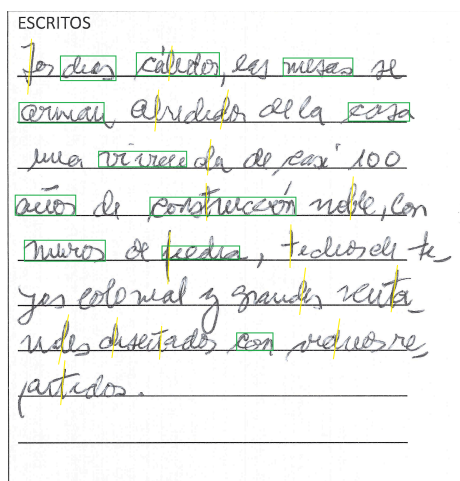 ESCRITOS
Los dias cálidos, las mesas se
arman alrededor de la casa
una vivienda de casi 100
años de construcción noble, con
muros de piedra, techos de te_
jas colonial y grandes venta_
nales diseñados con vidrios re_
partidos.